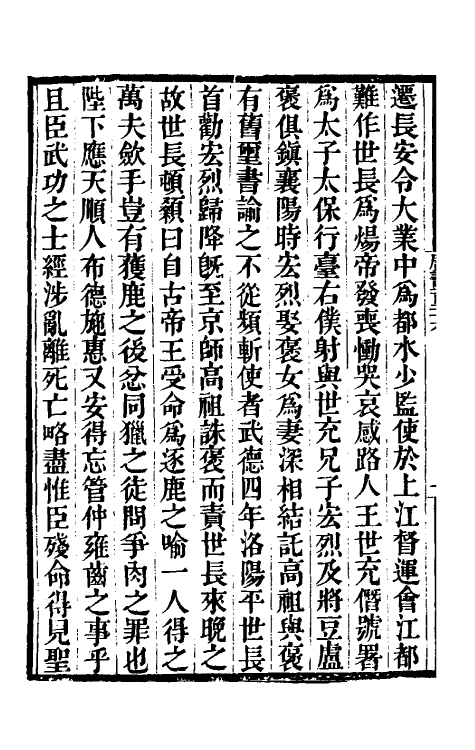 遷長安令大業中爲都水少監使於上江督運會江都
難作世長爲煬帝發喪慟哭哀感路人王世充僭號署
爲太子太保行臺右僕射與世充兄子宏烈及將豆盧
褒俱鎮襄陽時宏烈娶褒女爲妻深相結託高祖與褒
有舊璽書諭之不從頻斬使者武德四年洛陽平世長
首勸宏烈歸降旣至京師高祖誅褒而責世長來晚之
故世長頓顙曰自古帝王受命爲逐鹿之喻一人得之
萬夫斂手豈有獲鹿之後忿同獵之徒問爭肉之罪也
陛下應天順人布德施惠又安得忘管仲雍齒之事乎
且臣武功之士經涉亂離死亡略盡惟臣殘命得見聖